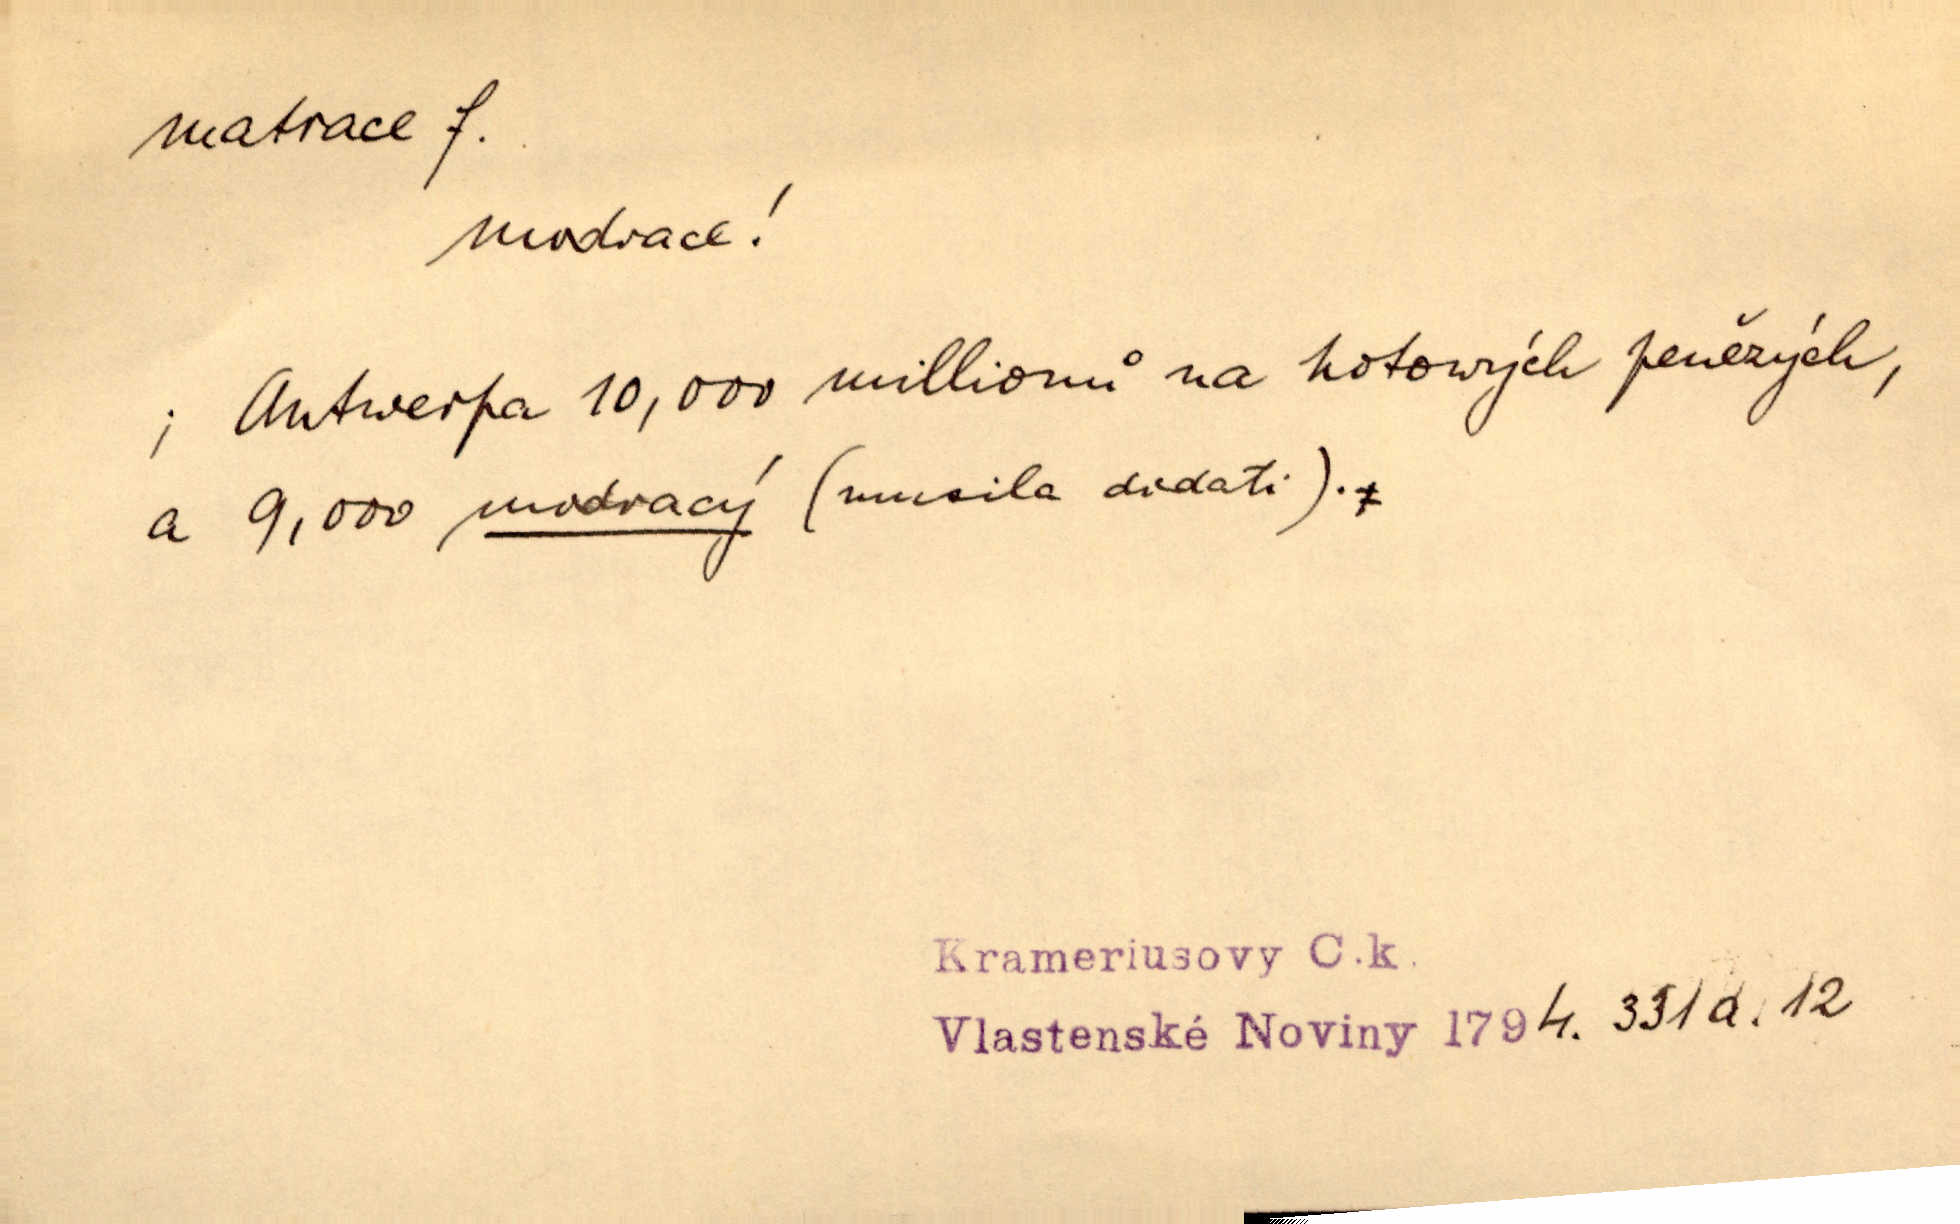 matrace f.
modrace!
; Antwerpa 10,000 millionů na hotowých penězých,
a 9,000 modracý (musila dodati).≠
Krameriusovy C.k.
Vlastenské Noviny 1794. 331a. 12